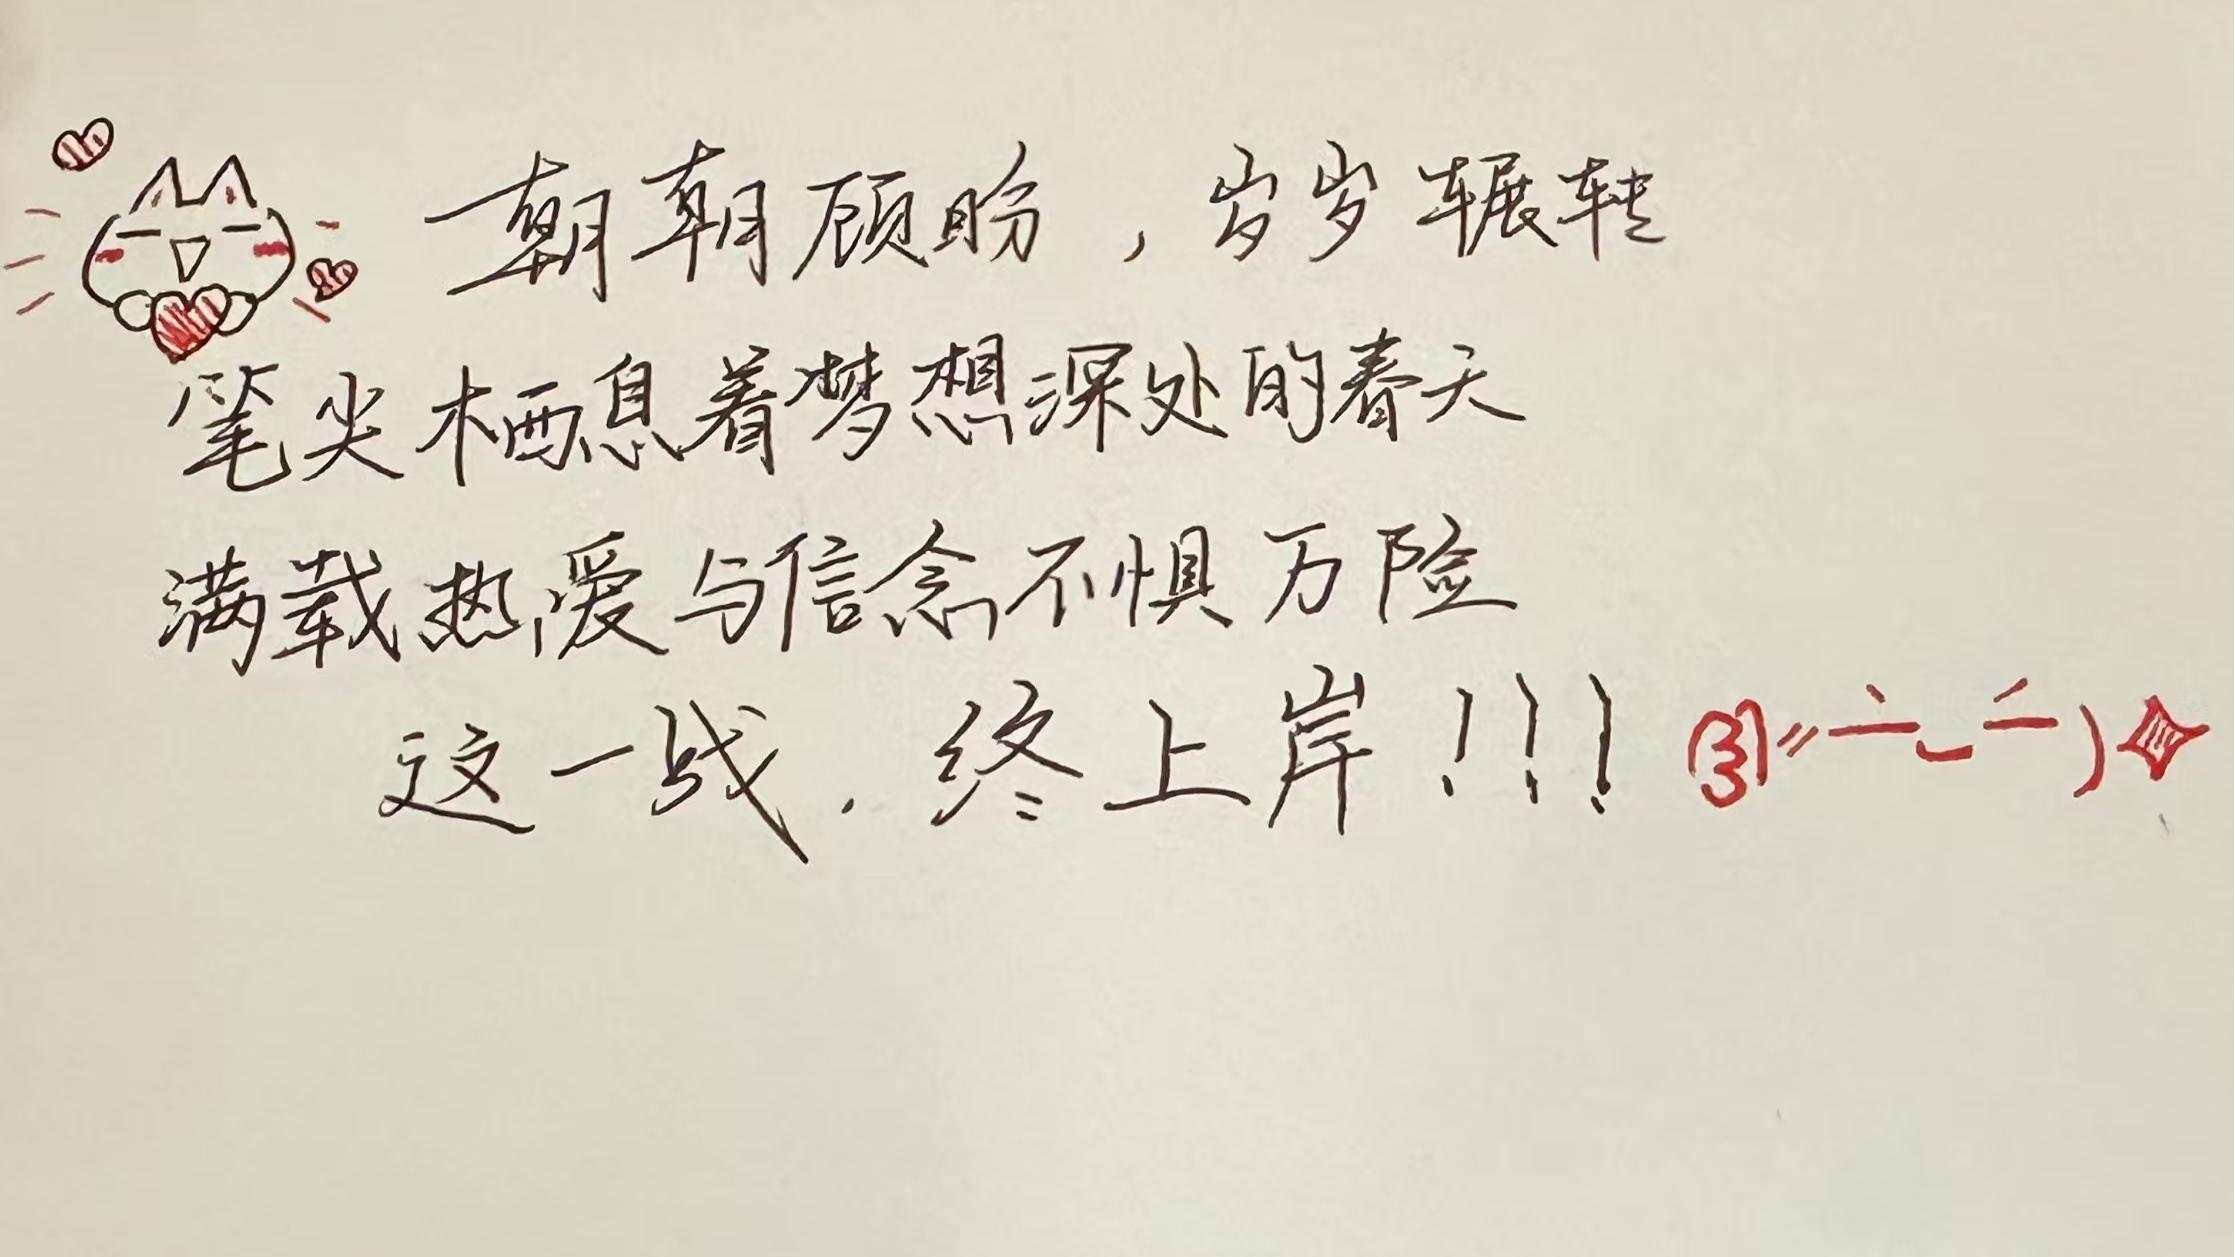 一朝朝顾盼，岁岁辗转
笔尖栖息着梦想深处的春天
满载热爱与信念不惧万险
这一战.终上岸!!!